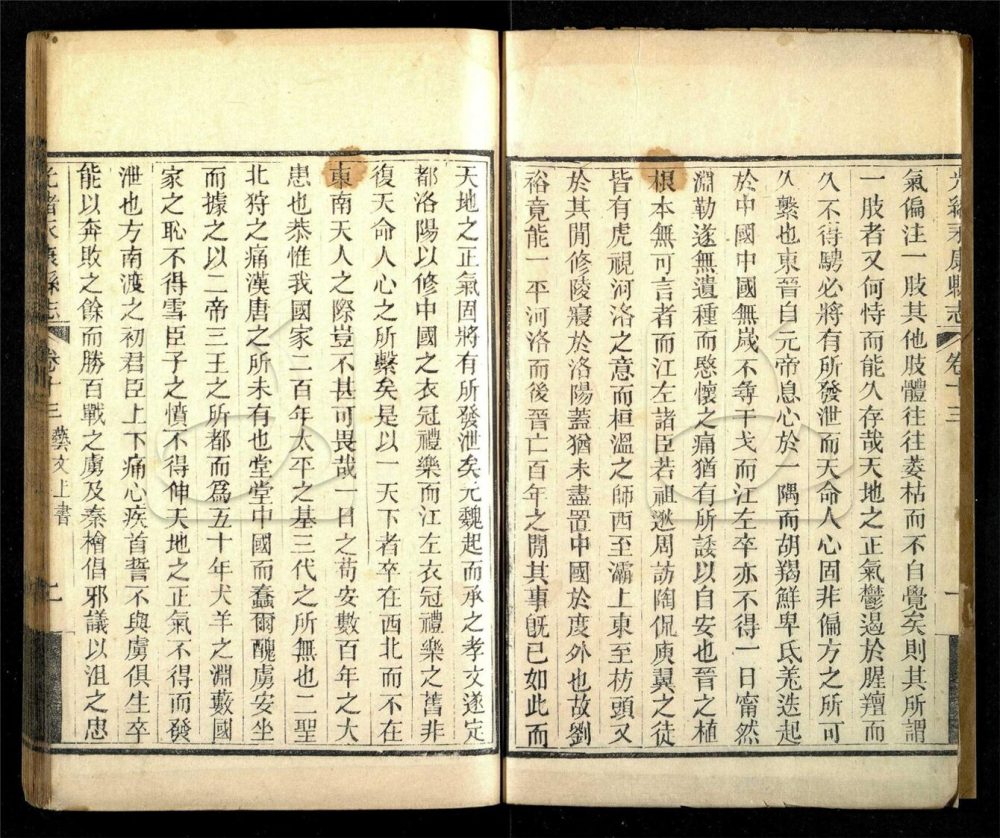 光緒永康縣志 卷十三
氣偏注一肢其他肢體往往萎枯而不自覺矣則其所謂
一肢者又何恃而能久存哉天地之正氣鬱遏於腥羶而
久不得騁必將有所發泄而天命人心固非偏方之所可
久繫也東晉自元帝息心於一隅而胡羯鮮卑氐羌迭起
於中國中國無歲不尋干戈而江左卒亦不得一日甯然
淵勒遂無遺種而愍懷之痛猶有所諉以自安也晉之植
根本無可言者而江左諸臣若祖逖周訪陶侃庾翼之徒
皆有虎視河洛之意而桓溫之師西至灞上東至枋頭又
於其閒修陵寢於洛陽蓋猶未盡置中國於度外也故劉
裕竟能一平河洛而後晉亡百年之閒其事旣已如此而
天地之正氣固將有所發泄矣元魏起而承之孝文遂定
都洛陽以修中國之衣冠禮樂而江左衣冠禮樂之舊非
復天命人心之所繫矣是以一天下者卒在西北而不在
東南天人之際豈不甚可畏哉一日之苟安數百年之大
患也恭惟我國家二百年太平之基三代之所無也二聖
北狩之痛漢唐之所未有也堂堂中國而蠢爾醜虜安坐
而據之以二帝三王之所都而爲五十年犬羊之淵藪國
家之恥不得雪臣子之憤不得伸天地之正氣不得而發
泄也方南渡之初君臣上下痛心疾首誓不與虜俱生卒
能以奔敗之餘而勝百戰之虜及秦檜倡邪議以沮之忠
光緒永康縣志 卷十三 藝文上書